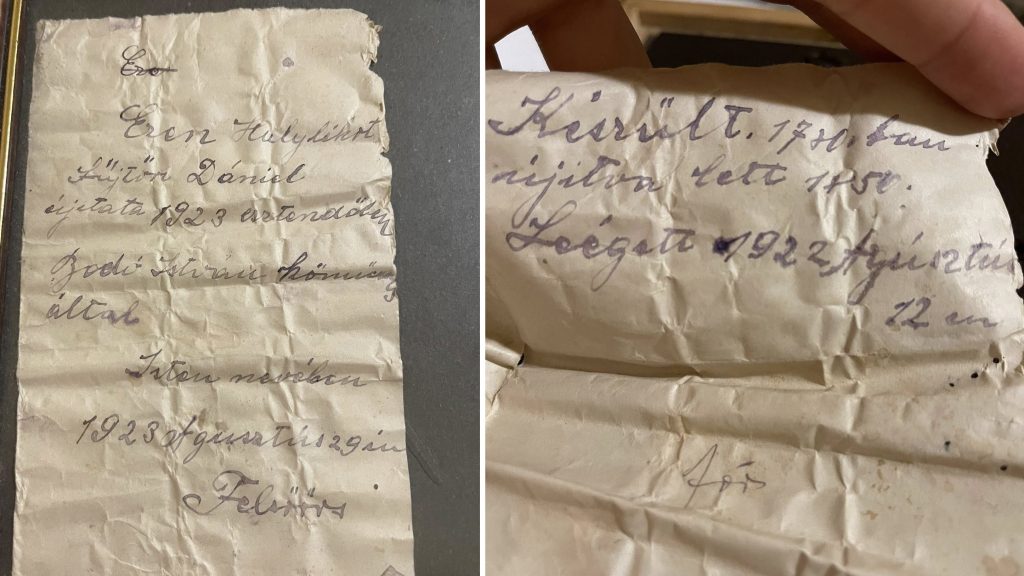 Ero
Eren Hulylikot
Sűjtőn Dániel
újitata 1923 esztendőben
Bodó István kőműves
által
Isten nevében
1923 Agusztus 29én
Felsőörs
Készűlt. 1780.ban
újitva lett 1850.
Leégett 1922 Agúsztús
12 en